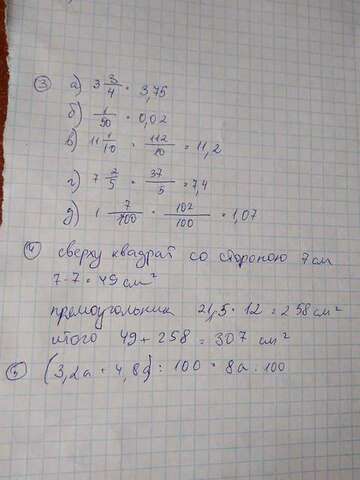 ③ а) 3 3/4 = 3,75
б) 1/50 = 0,02
в) 11 1/10 = 112/10 = 11,2
г) 7 2/5 = 37/5 = 7,4
д) 1 7/100 = 102/100 = 1,07
④ сверху квадрат со стороною 7 см
7·7 = 49 см²
прямоугольника 21,5 · 12 = 258 см²
итого 49 + 258 = 307 см²
⑤ (3,2а + 4,8а) : 100 = 8а : 100